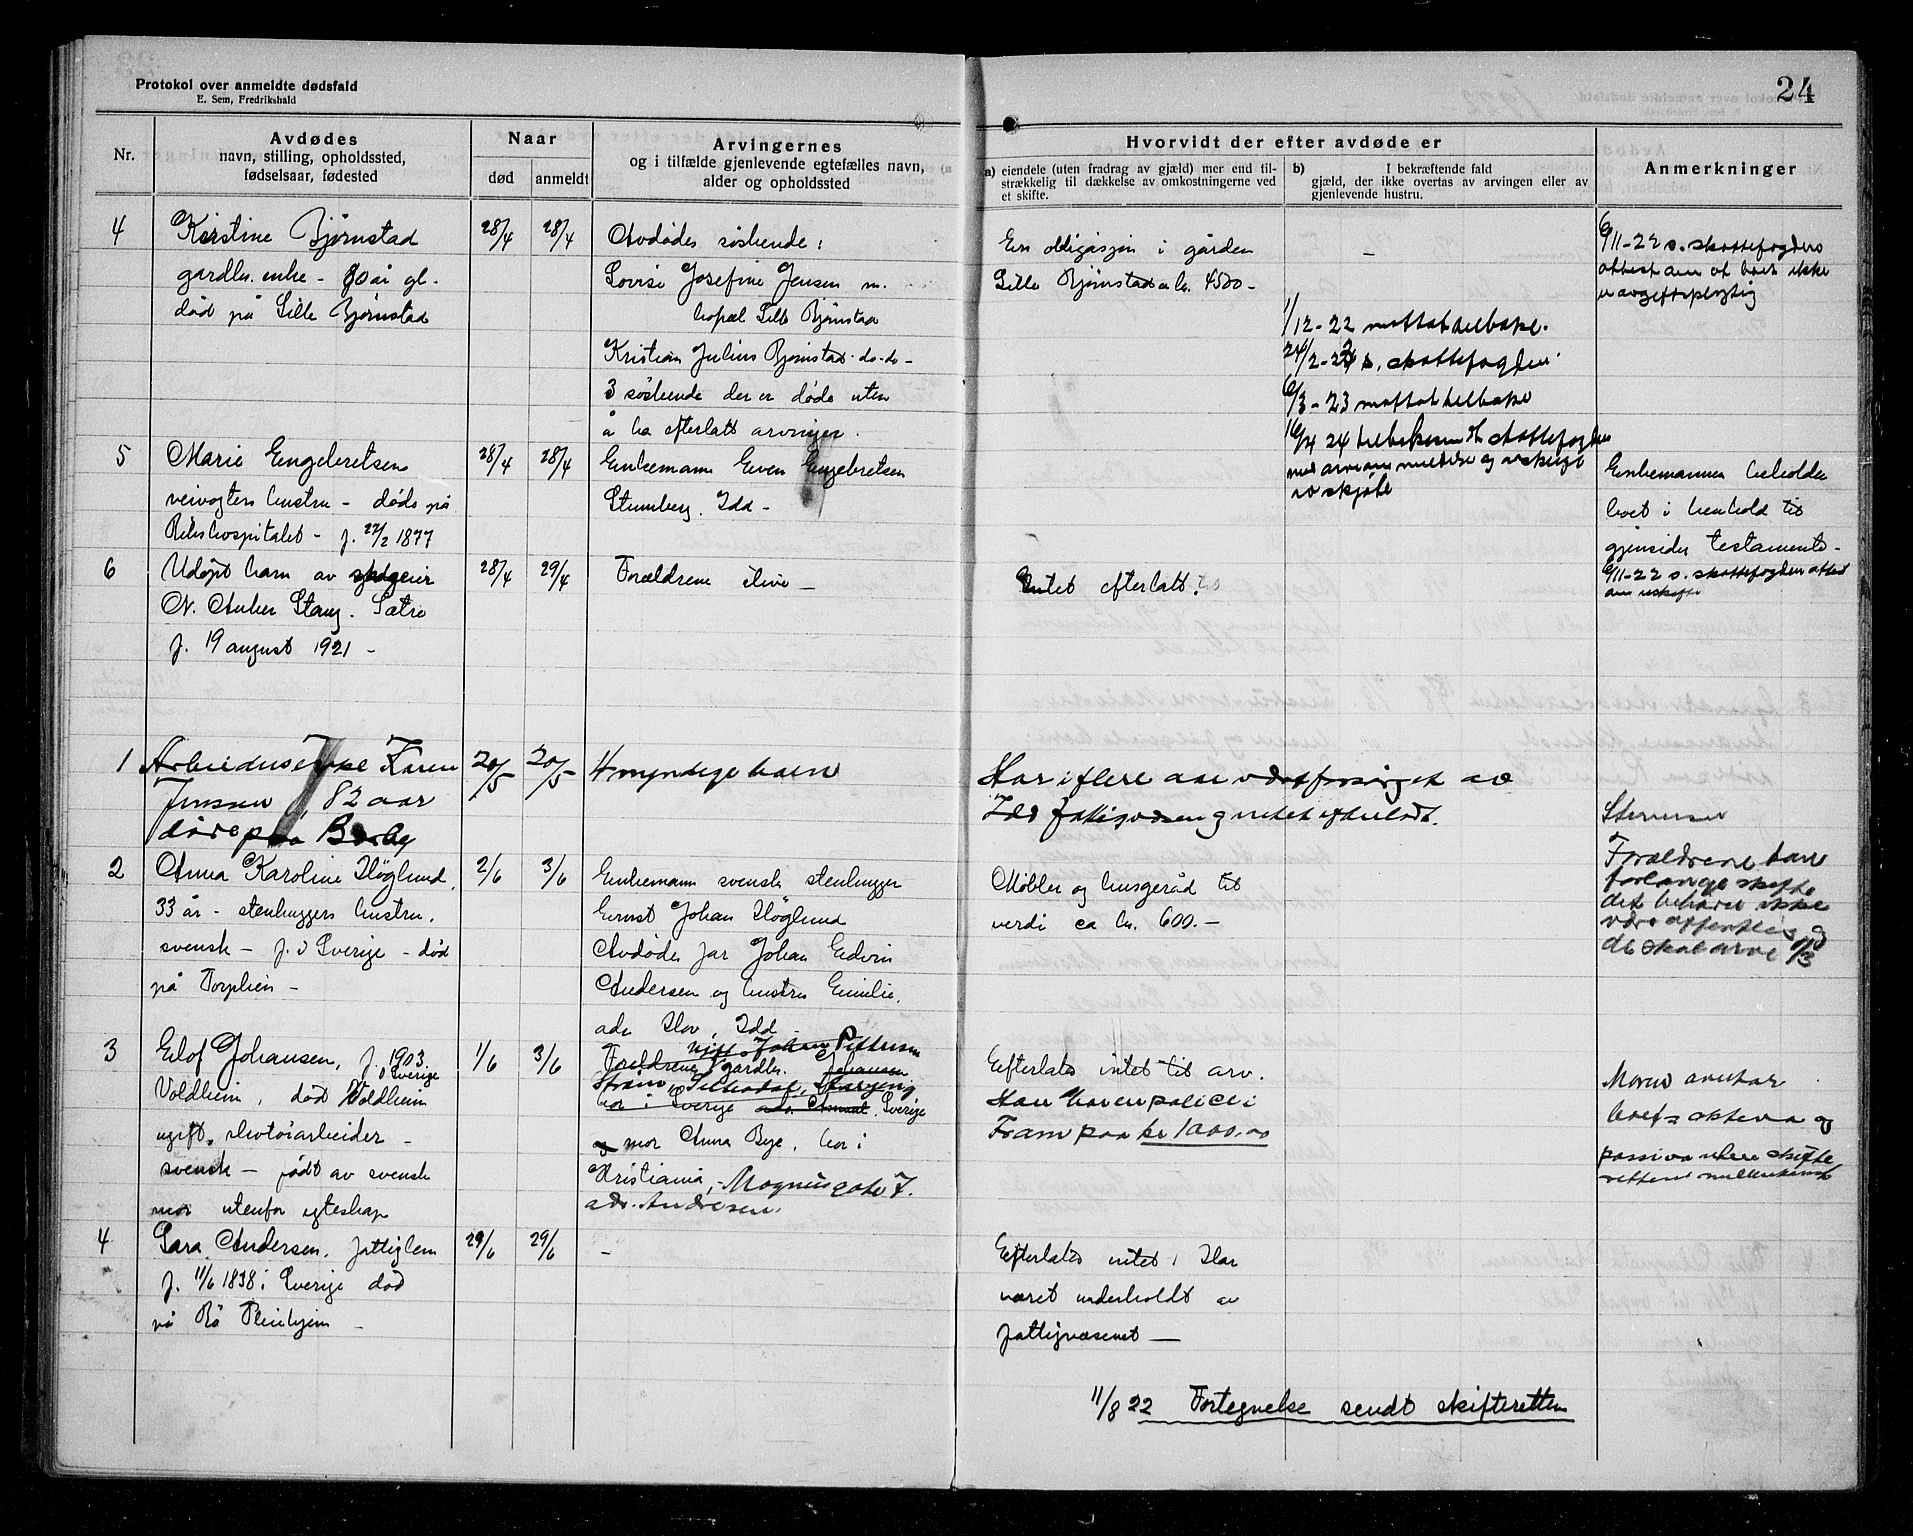 Protokol over anmeldte dødsfald
E. Sem, Fredrikshald
24
Nr.
Avdødes
navn, stilling, opholdssted,
fødselsaar, fødested
Naar
død
anmeldt
Arvingernes
og i tilfælde gjenlevende egtefælles navn,
alder og opholdssted
Hvorvidt der efter avdøde er
a) eiendele (uten fradrag av gjæld) mer end til-
strækkelig til dækkelse av omkostningerne ved
et skifte.
b) I bekræftende fald
gjæld, der ikke overtas av arvingen eller av
gjenlevende hustru.
Anmerkninger
4
Kristine Bjørnstad
gardbr. enke - 80 år gl.
død på Lille Bjørnstad
28/4
28/4
Avdødes søskende:
Lovise Josefine Jensen m.
bopæl Lille Bjørnstad
Kristian Julius Bjørnstad - do - do -
3 søskende der er døde uten
å ha efterlatt arvinger.
En obligasjon i gården
Lille Bjørnstad kr. 4500 -
-
1/12-22 mottat tilbake.
24/2-23 s. skattefogden
6/3-23 mottat tilbake
16/4 24 tilbakesendt skattefogden
med arveanmeldelse og avskrift
av skjøte
6/11-22 s. skattefogdens
attest om at boet ikke
er avgiftspligtig
5
Marie Engebretsen
veivogters hustru - døde på
Rikshospitalet - f. 27/2 1877
28/4
28/4
Enkemann Even Engebretsen
Stumberg, Idd -
Enkemannen beholder
boet i henhold til
gjensidig testamente -
6/11-22 s. skattefogden attest
om uskifte
6
Udøpt barn av skogeier
N. Anker Stang. Sætre
f. 19 august 1921 -
28/4
29/4
Forældrene ilive -
Intet efterlatt.
1
Arbeiderenke Karen
Jensen 82 aar
døde paa Berby
20/5
20/5
4 myndige barn
Har i flere aar vært forsørget av
Idd fattigvæsen og intet efterladt.
2
Anna Karoline Höglund,
33 år - stenhuggers hustru,
svensk - f. i Sverige - død
på Torplien -
2/6
3/6
Enkemann svensk stenhugger
Ernst Johan Höglund
Avdødes far Johan Edvin
Andersen og hustru Emilie,
adr. Hov, Idd -
Møbler og husgeråd til
verdi ca kr. 600.-
Stervbo
Forældrene kan
forlange skifte
det behøver ikke
være offentlig og
de skal arve 1/3
3
Elof Johansen, f. 1903
i Sverige
Voldheim, død Voldheim
ugift, skotøiarbeider -
svensk - født av svensk
mor utenfor egteskap
1/6
3/6
Johan Pettersen
Foreldrene gardbr. Johansen
bor i Sverige Sverige
og mor Anna Bye, bor i
Kristiania, - Magnusgate 7.
adr. Andresen.
Efterlates intet til arv.
Han har en police i
Fram paa kr 1000.00
Moren overtar
boets aktiva og
passiva uten skifte
rettens mellemkomst
4
Sara Andersen, fattiglem
f. 11/6 1838 i Sverige død
på Rå Pleiehjem -
29/6
29/6
-
Efterlates intet. Har
været underholdt av
fattigvæsenet -
11/8 22 Fortegnelse sendt skifteretten